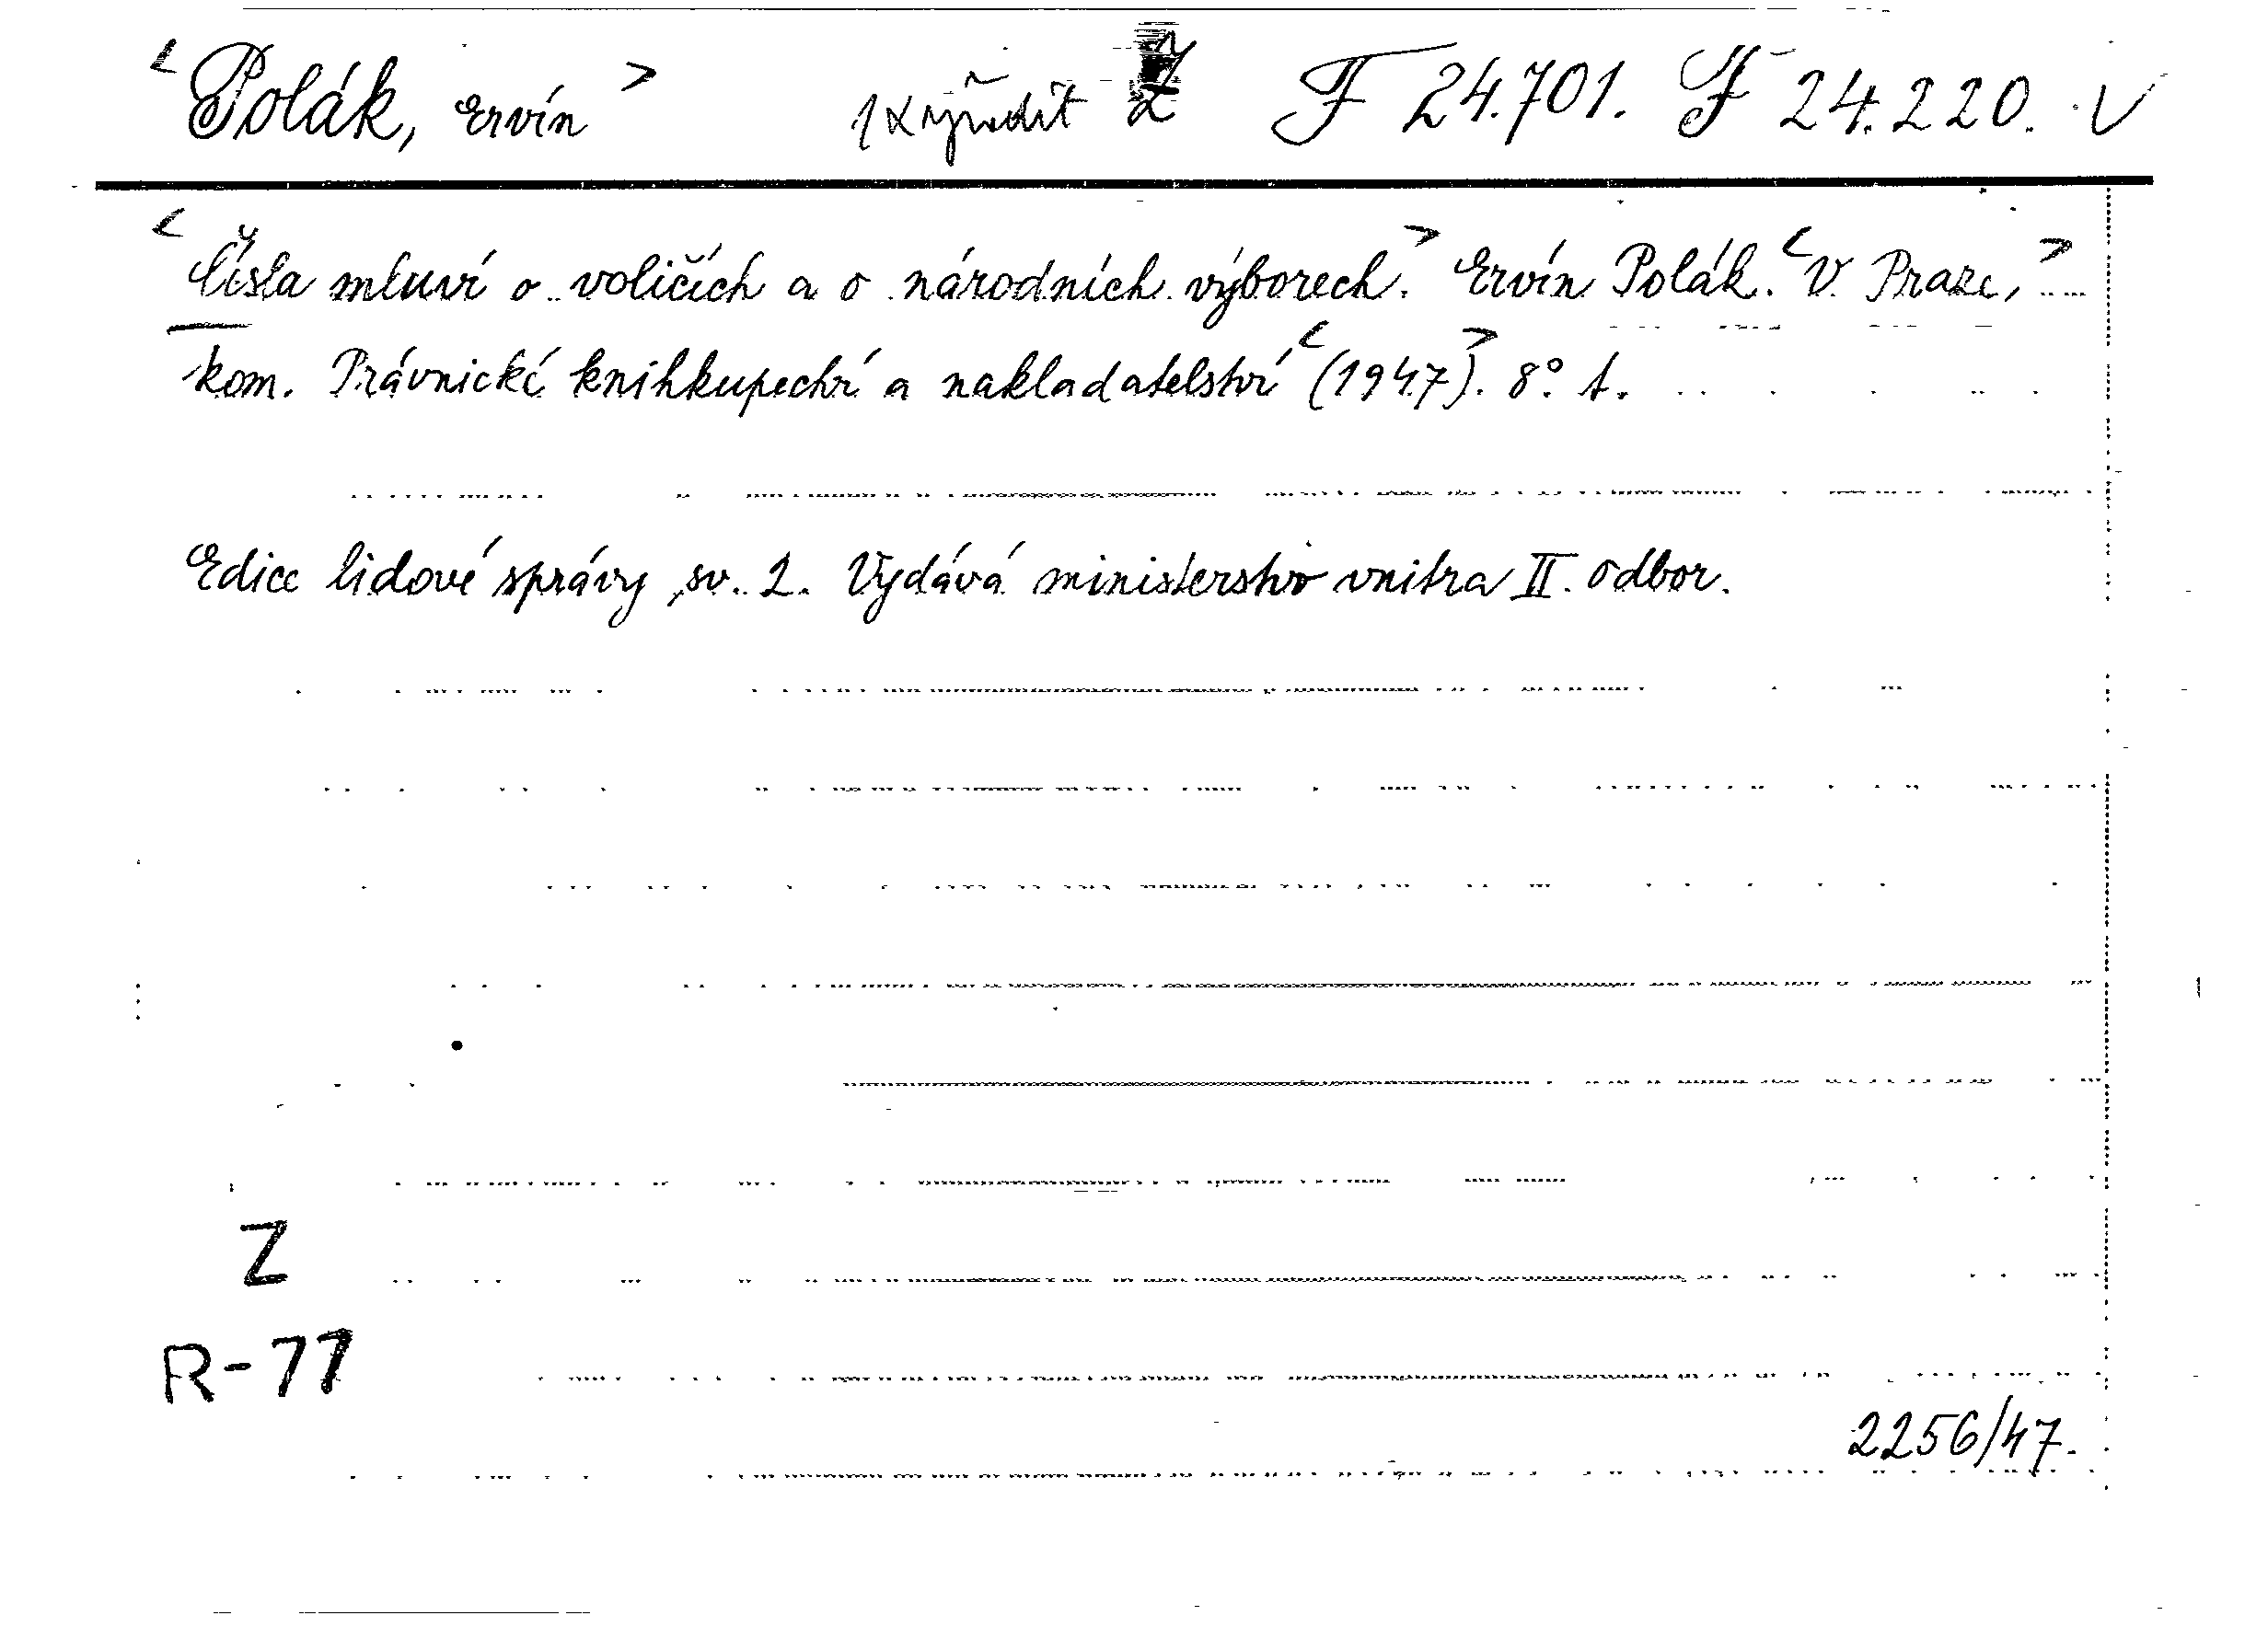 < Polák, Ervín > 1x vyřadit Z F 24.701. F 24.220. V
< Čísla mluví o voličích a o národních výborech. > Ervín Polák. < V Praze, >
kom. Právnické knihkupectví a nakladatelství < (1947) >. 8°. 1.
Edice lidové správy, sv. 2. Vydává ministerstvo vnitra II. odbor.
Z
R-77
2256/47.